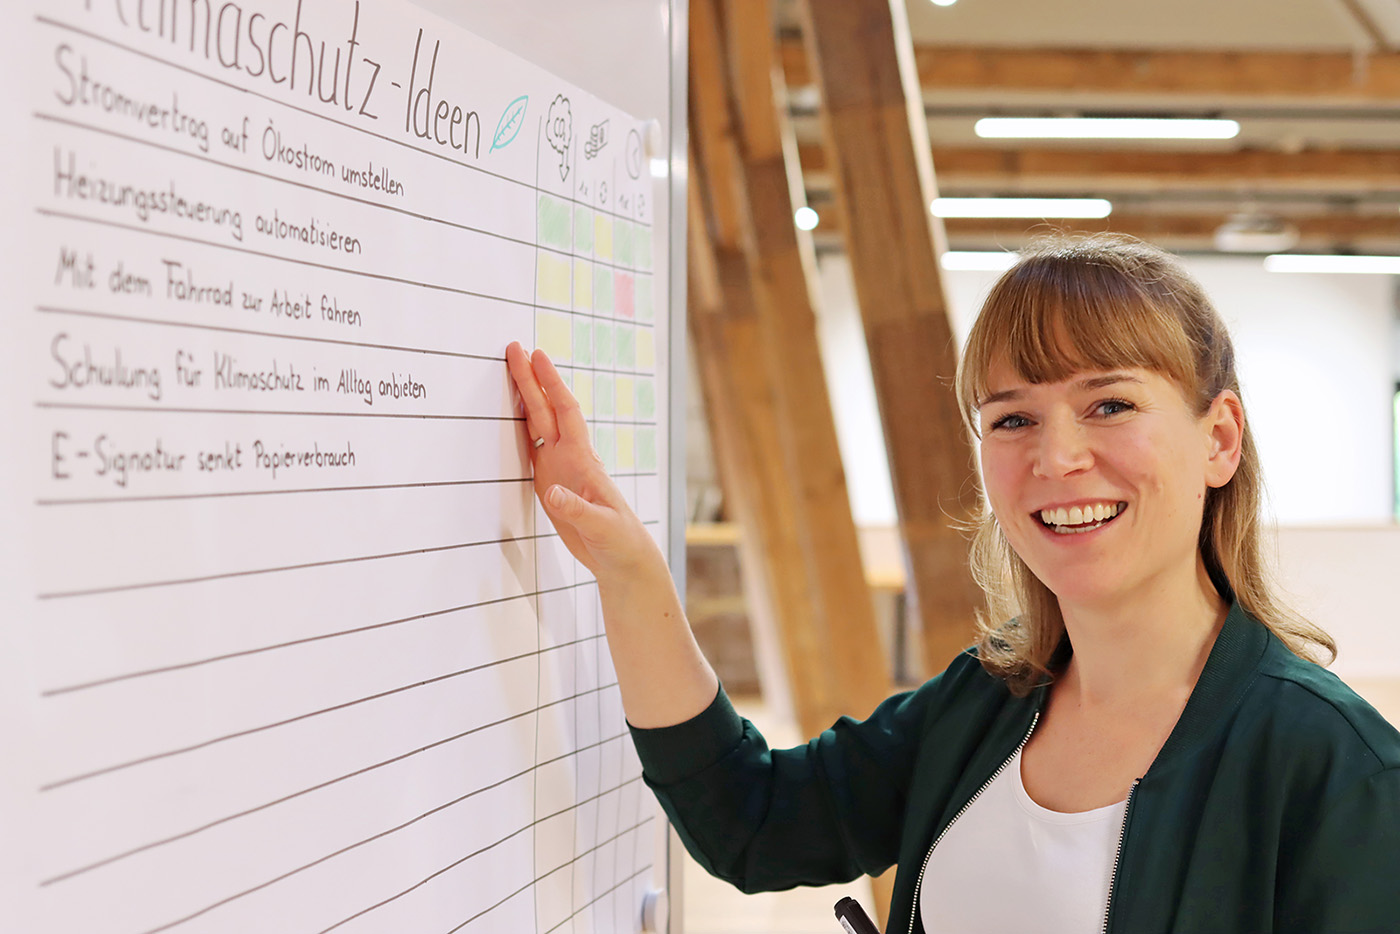 Klimaschutz-Ideen
CO₂
1x 1x
Stromvertrag auf Ökostrom umstellen
Heizungssteuerung automatisieren
Mit dem Fahrrad zur Arbeit fahren
Schulung für Klimaschutz im Alltag anbieten
E-Signatur senkt Papierverbrauch